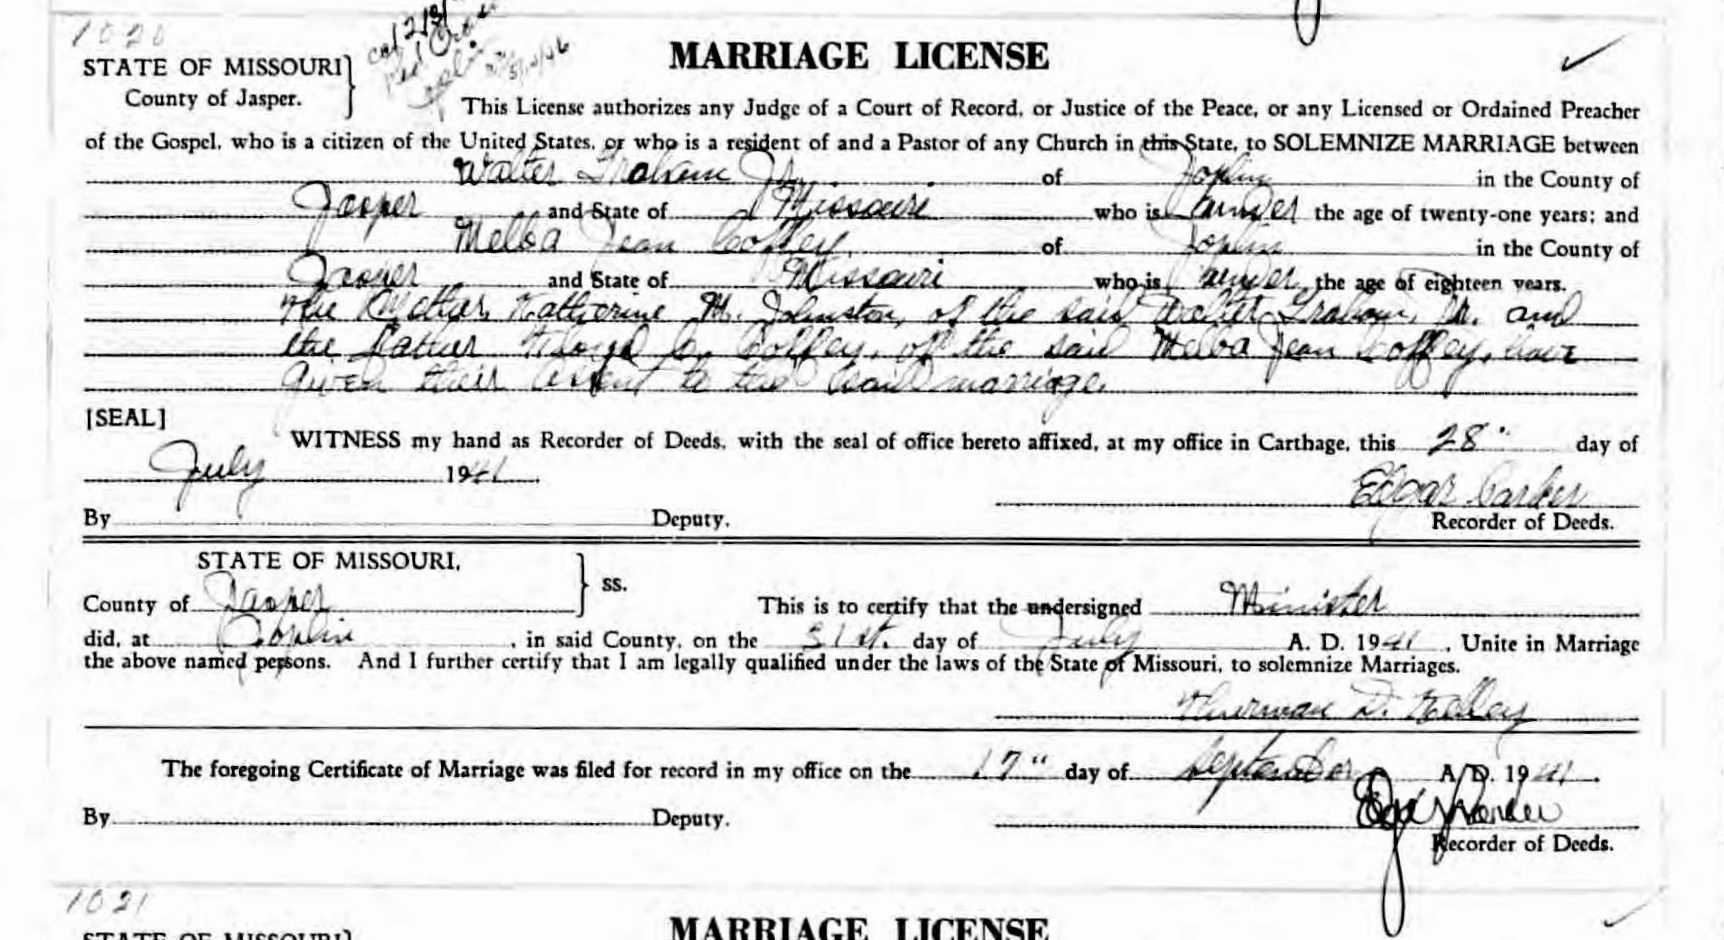 1020
STATE OF MISSOURI
County of Jasper.
MARRIAGE LICENSE
This License authorizes any Judge of a Court of Record, or Justice of the Peace, or any Licensed or Ordained Preacher
of the Gospel, who is a citizen of the United States, or who is a resident of and a Pastor of any Church in this State, to SOLEMNIZE MARRIAGE between
Walter Graham Jr. of Joplin in the County of
Jasper and State of Missouri who is under the age of twenty-one years; and
Melba Jean Coffey of Joplin in the County of
Jasper and State of Missouri who is under the age of eighteen years.
the Mother, Katherine M. Johnston, of the said Walter Graham, Jr. and
the Father C. Coffey, of the said Melba Jean Coffey, have
given their assent to the said marriage.
[SEAL]
WITNESS my hand as Recorder of Deeds, with the seal of office hereto affixed, at my office in Carthage, this 28" day of
July 1941.
Edgar Carker
By Deputy. Recorder of Deeds.
STATE OF MISSOURI,
ss.
County of Jasper This is to certify that the undersigned Minister
did, at Joplin, in said County, on the 31st. day of July A. D. 1941, Unite in Marriage
the above named persons. And I further certify that I am legally qualified under the laws of the State of Missouri, to solemnize Marriages.
Thurman D. Kelley
The foregoing Certificate of Marriage was filed for record in my office on the 17" day of September A. D. 1941.
By Deputy.
Recorder of Deeds.
1021
MARRIAGE LICENSE
STATE OF MISSOURI